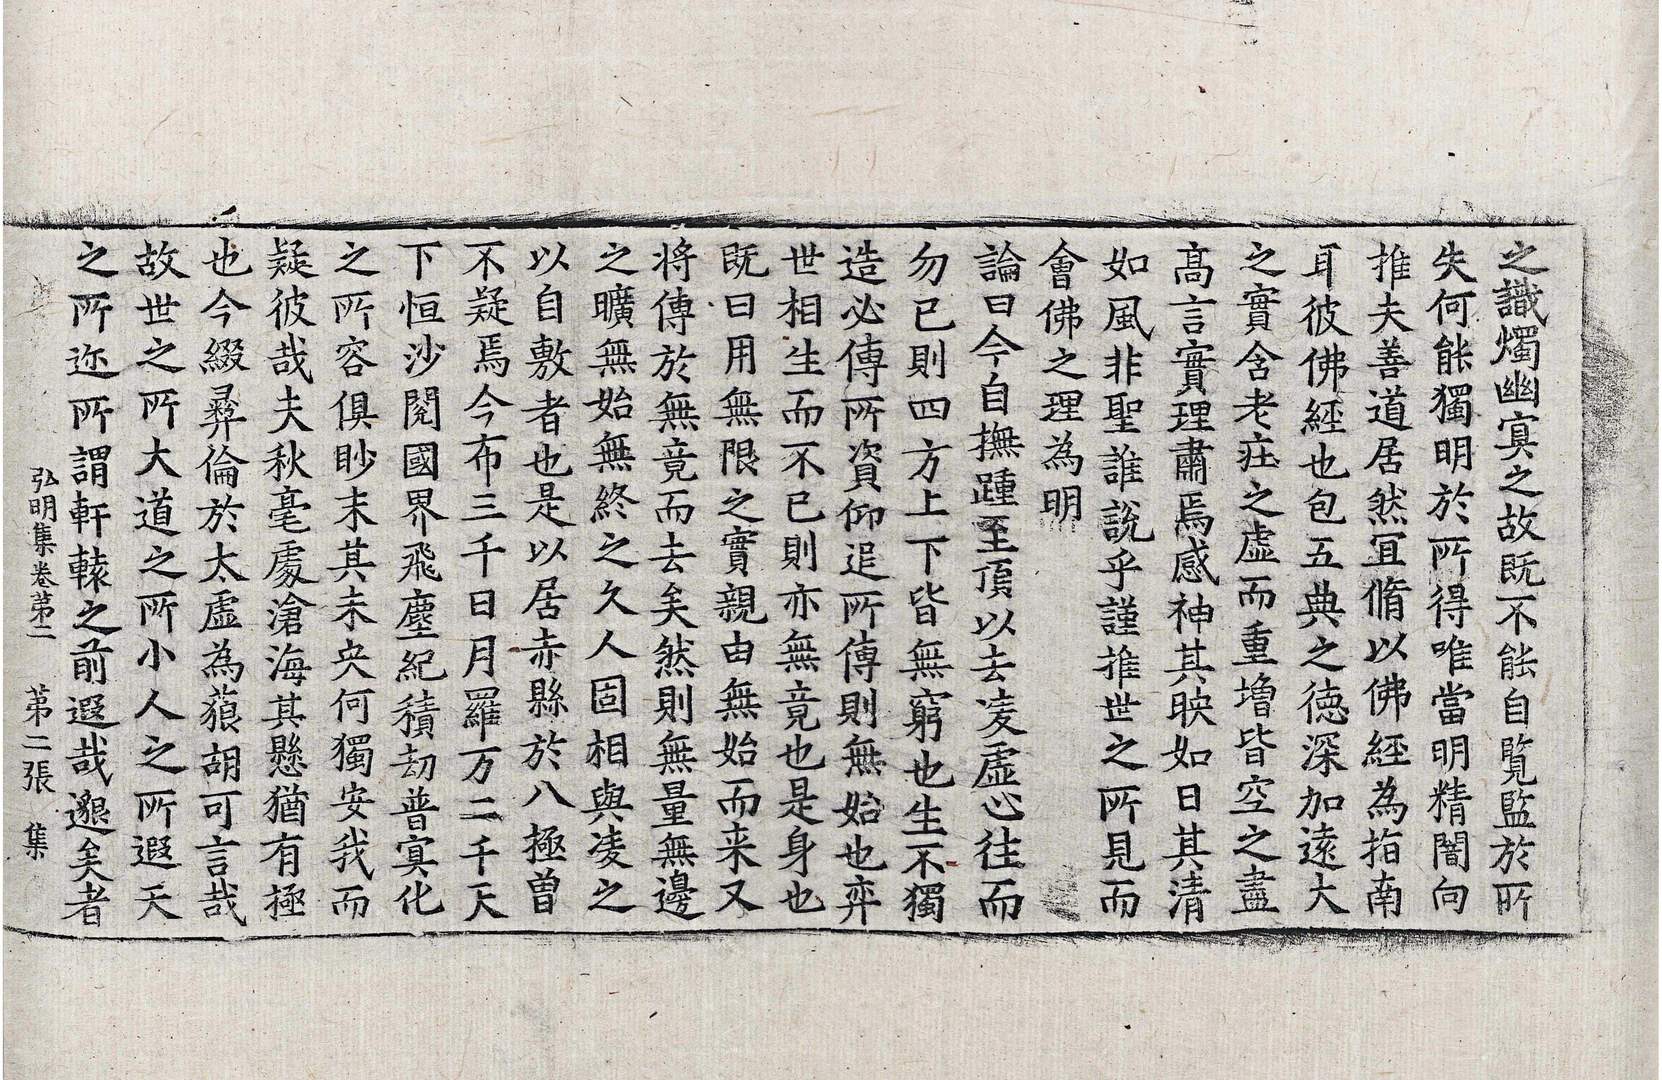 之識燭幽㝠之故既不能自覧監於所
失何能獨明於所得唯當明精闇向
推夫善道居然冝脩以佛經為指南
耳彼佛經也包五典之徳深加遠大
之實含老莊之虛而重增皆空之盡
髙言實理肅焉感神其映如日其清
如風非聖誰說乎謹推世之所見而
會佛之理為明
論曰今自撫踵至頂以去凌虛心往而
勿已則四方上下皆無窮也生不獨
造必傳所資仰追所傳則無始也弈
世相生而不已則亦無竟也是身也
既曰用無限之實親由無始而来又
将傳於無竟而去矣然則無量無邊
之曠無始無終之久人固相與凌之
以自敷者也是以居赤縣於八極曽
不疑焉今布三千日月羅万二千天
下恒沙閱國界飛塵紀積劫普㝠化
之所容俱眇末其未央何獨安我而
疑彼哉夫秋毫處滄海其懸猶有極
也今綴彛倫於太虛為藐胡可言哉
故世之所大道之所小人之所遐天
之所迩所謂軒轅之前遐哉邈矣者
弘明集卷苐二 苐二張 集